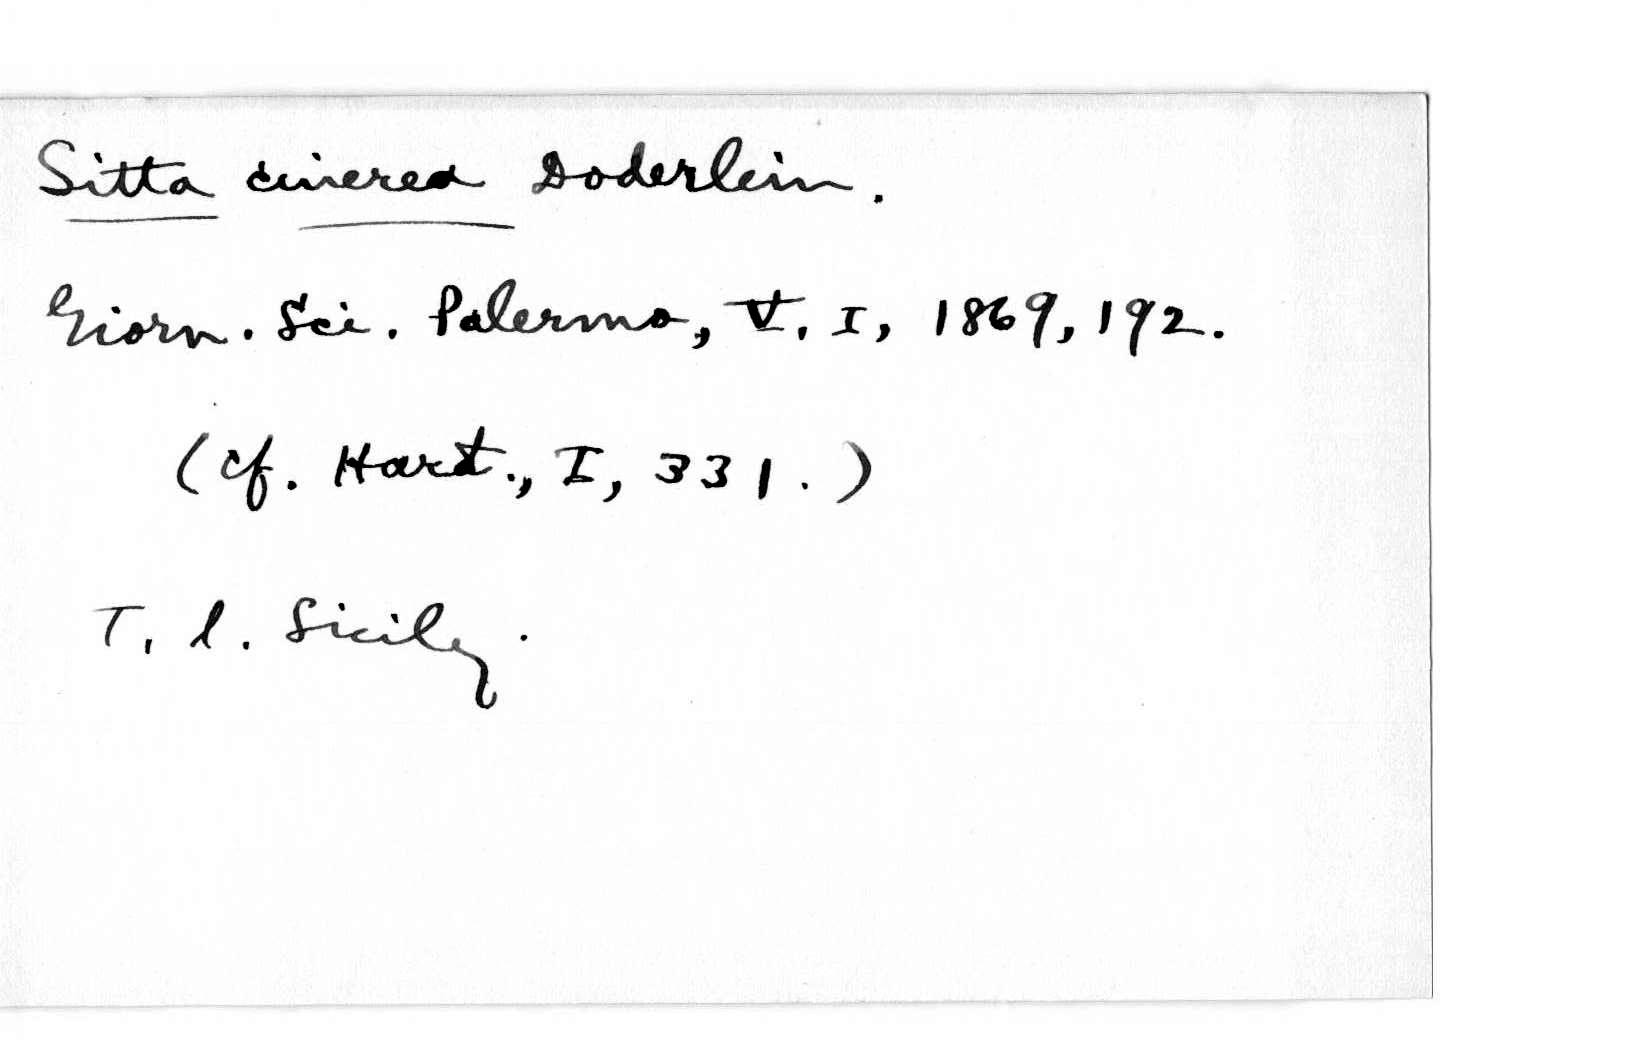 Sitta cinerea Doderlein.
Giorn. Sci. Palermo, V. I, 1869, 192.
(cf. Hart., I, 331.)
T. l. Sicily.